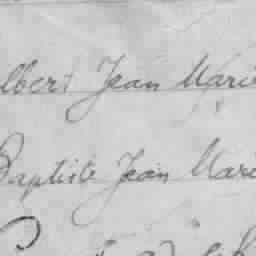 lbert Jean Marie
Baptiste Jean Marie